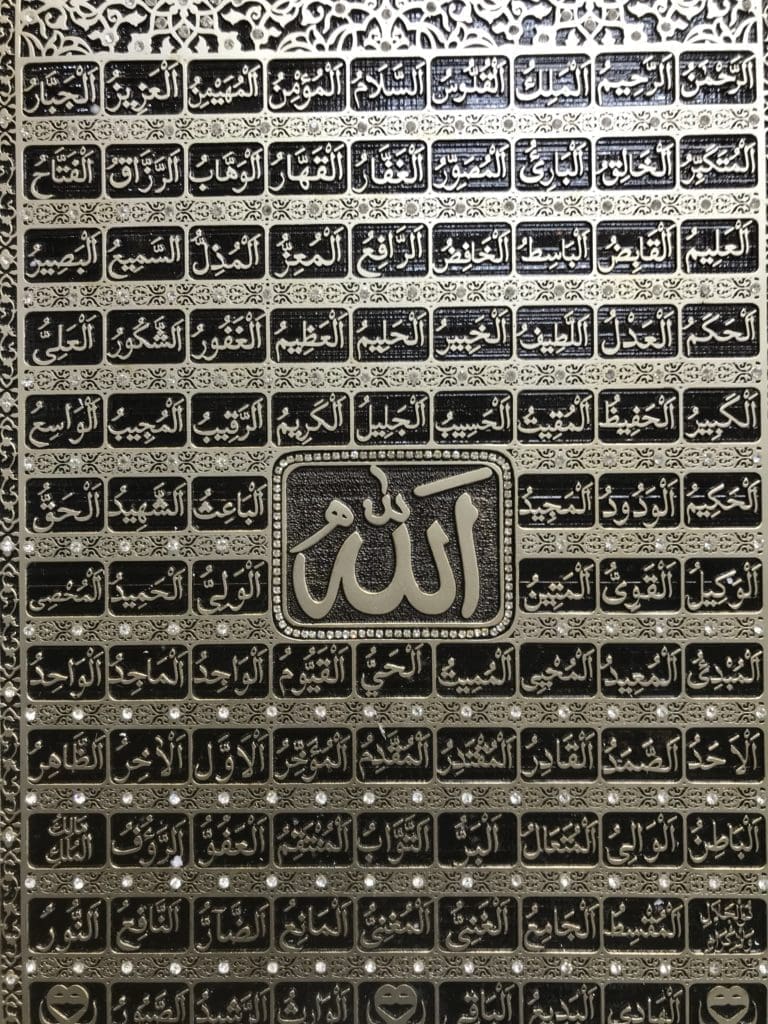 اَلرَّحْمٰنُ اَلرَّحِيمُ اَلْمَلِكُ اَلْقُدُّوسُ اَلسَّلَامُ اَلْمُؤْمِنُ اَلْمُهَيْمِنُ اَلْعَزِيزُ اَلْجَبَّارُ
اَلْمُتَكَبِّرُ اَلْخَالِقُ اَلْبَارِئُ اَلْمُصَوِّرُ اَلْغَفَّارُ اَلْقَهَّارُ اَلْوَهَّابُ اَلرَّزَّاقُ اَلْفَتَّاحُ
اَلْعَلِيمُ اَلْقَابِضُ اَلْبَاسِطُ اَلْخَافِضُ اَلرَّافِعُ اَلْمُعِزُّ اَلْمُذِلُّ اَلسَّمِيعُ اَلْبَصِيرُ
اَلْحَكَمُ اَلْعَدْلُ اَللَّطِيفُ اَلْخَبِيرُ اَلْحَلِيمُ اَلْعَظِيمُ اَلْغَفُورُ اَلشَّكُورُ اَلْعَلِيُّ
اَلْكَبِيرُ اَلْحَفِيظُ اَلْمُقِيتُ اَلْحَسِيبُ اَلْجَلِيلُ اَلْكَرِيمُ اَلرَّقِيبُ اَلْمُجِيبُ اَلْوَاسِعُ
اَلْحَكِيمُ اَلْوَدُودُ اَلْمَجِيدُ اَلْبَاعِثُ اَلشَّهِيدُ اَلْحَقُّ
اللّٰهُ
اَلْوَكِيلُ اَلْقَوِيُّ اَلْمَتِينُ اَلْوَلِيُّ اَلْحَمِيدُ اَلْمُحْصِى
اَلْمُبْدِئُ اَلْمُعِيدُ اَلْمُحْيِى اَلْمُمِيتُ اَلْحَيُّ اَلْقَيُّومُ اَلْوَاجِدُ اَلْمَاجِدُ اَلْوَاحِدُ
اَلْاَحَدُ اَلصَّمَدُ اَلْقَادِرُ اَلْمُقْتَدِرُ اَلْمُقَدِّمُ اَلْمُؤَخِّرُ اَلْاَوَّلُ اَلْاٰخِرُ اَلظَّاهِرُ
اَلْبَاطِنُ اَلْوَالِى اَلْمُتَعَالُ اَلْبَرُّ اَلتَّوَّابُ اَلْمُنْتَقِمُ اَلْعَفُوُّ اَلرَّؤُفُ مَالِكُ الْمُلْكِ
ذُو الْجَلَالِ وَالْاِكْرَامِ اَلْمُقْسِطُ اَلْجَامِعُ اَلْغَنِيُّ اَلْمُغْنِيُّ اَلْمَانِعُ اَلضَّارُّ اَلنَّافِعُ اَلنُّورُ
اَلْهَادِى اَلْبَدِيعُ اَلْبَاقِى اَلْوَارِثُ اَلرَّشِيدُ اَلصَّبُورُ